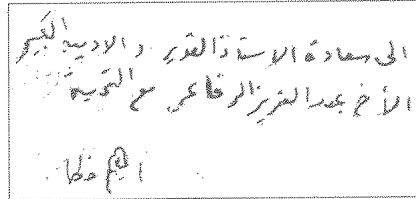 الى سعادة الاستاذ القدير والاديب الكبير
الأخ عبدالعزيز الرفاعي مع التحية